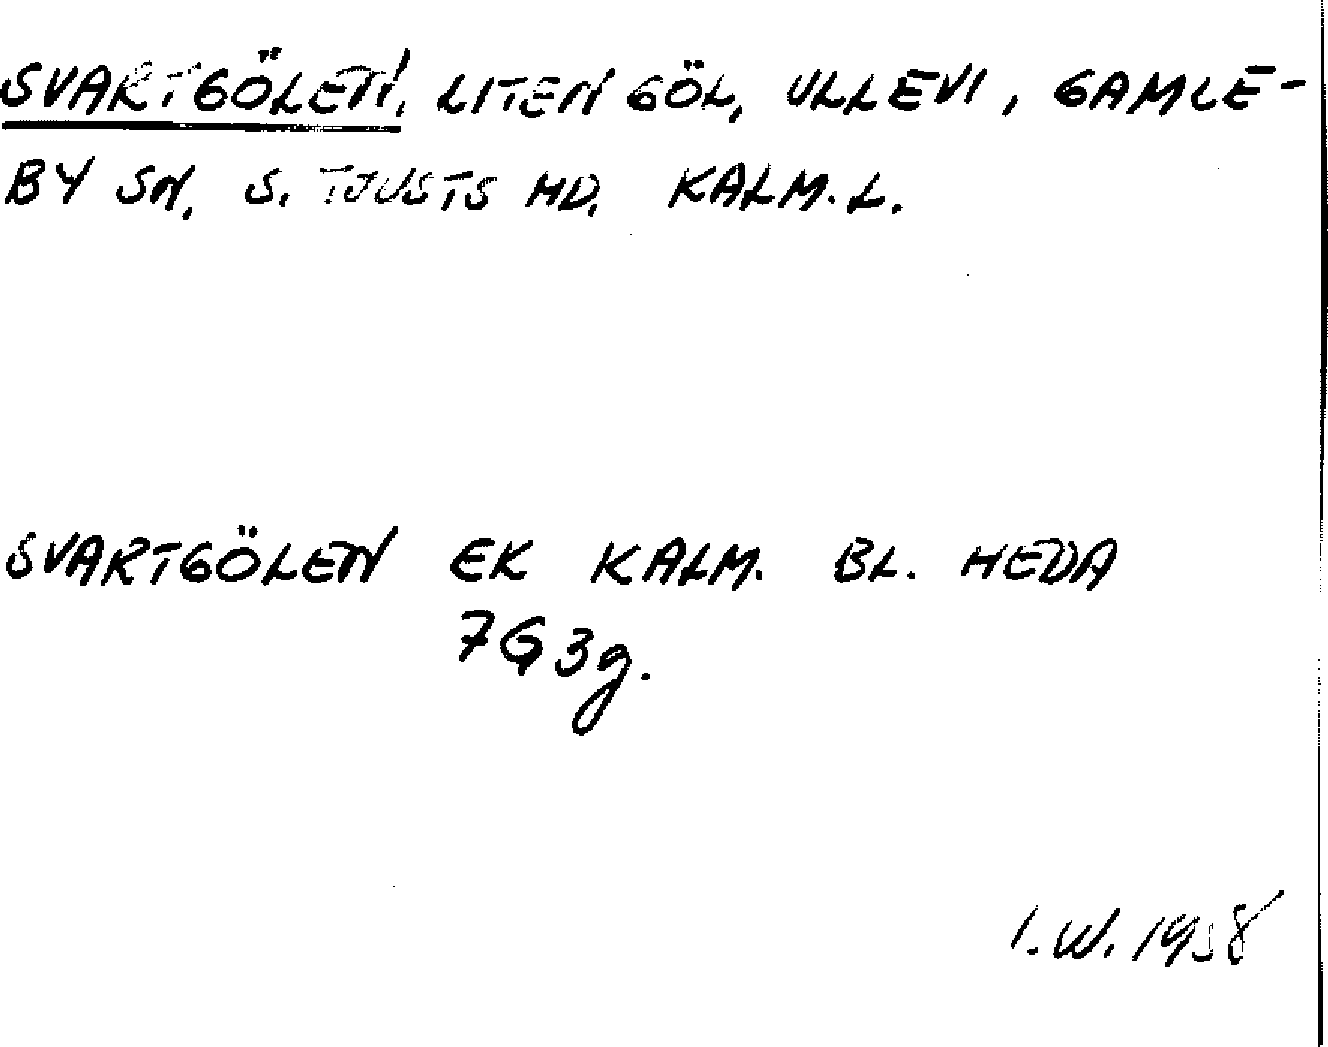 SVARTGÖLEN, LITEN GÖL, ULLEVI, GAMLE-
BY SN, S. TJUSTS HD, KALM. L.
SVARTGÖLEN EK KALM. BL. HEDA
7G3g.
I.W. 1958